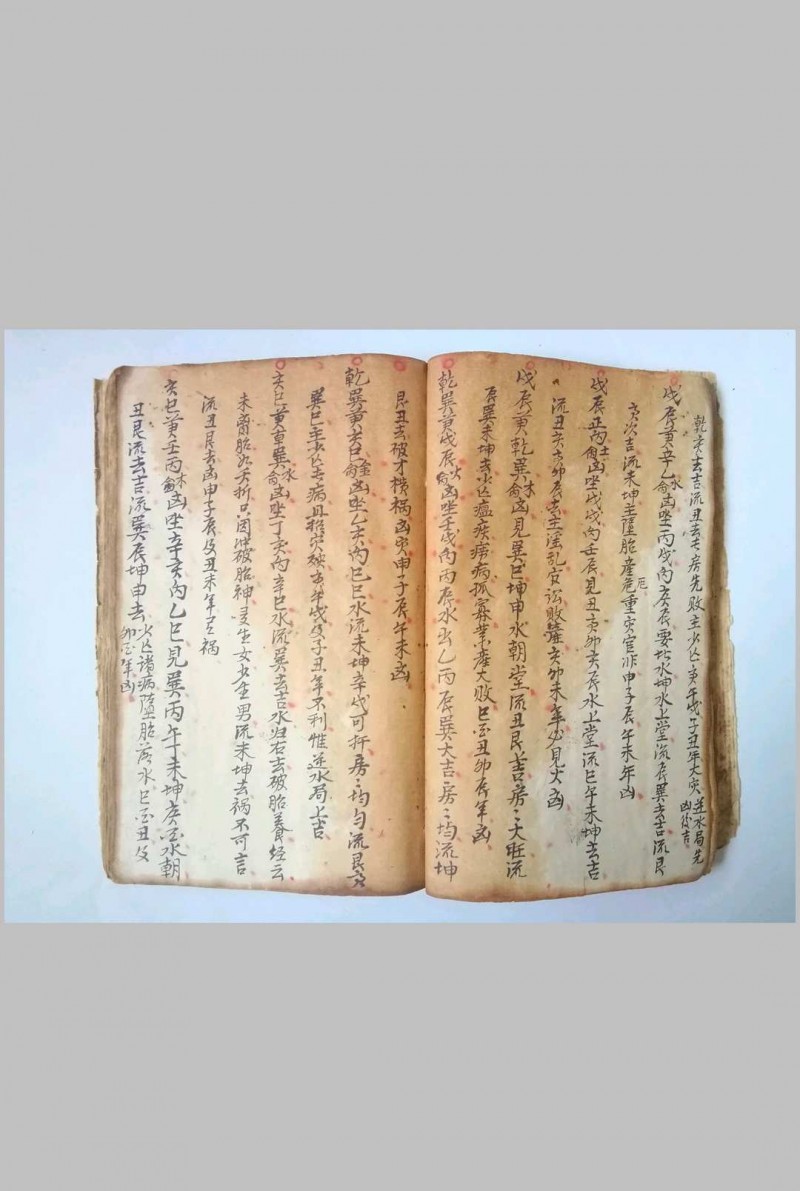 乾亥去吉流丑去長房先敗主少亡寅午戌子丑年大灾逆水局先凶后吉
戌辰兼辛乙水龕凶坐丙戌向庚辰要坤水上堂流辰巽去吉流艮
亥次吉流未坤主墮胎產危厄重灾官非申子辰午未年凶
戌辰正向土龕凶坐戊戌向壬辰見丑寅卯亥辰水上堂流巳午未坤去吉
流丑亥寅卯辰去主淫乱灾訟敗 亥卯未年必見火凶
戌辰兼乾巽木龕凶見巽巳坤申水朝堂流丑艮去吉房〻大旺流
辰巽未坤去少亡瘟疾癆病孤寡業產大敗巳酉丑卯辰年凶
乾巽兼戌辰火龕凶坐壬戌向丙辰水出乙丙辰巽大吉房〻均流坤
艮丑去破才横禍凶寅申子辰午未凶
乾巽兼亥巳金龕凶坐乙亥向巳巳水流未坤辛戌可扦房〻均匀流艮
巽巳主少亡去病且招灾破寅午戌及子丑年不利惟逆水局上吉
亥巳兼乾巽水龕凶坐丁亥向辛巳水流巽去吉水归右去破胎養经云
未 胎 夭折只因冲破胎神 生女少生男流未坤去祸不可言
流丑艮去凶申子辰及丑未年 祸
亥巳兼壬丙木龕凶坐辛亥向乙巳見巽丙午未坤庚酉水朝
丑艮流去吉流巽辰坤申去少亡諸病墮胎落水巳酉丑及卯 年凶